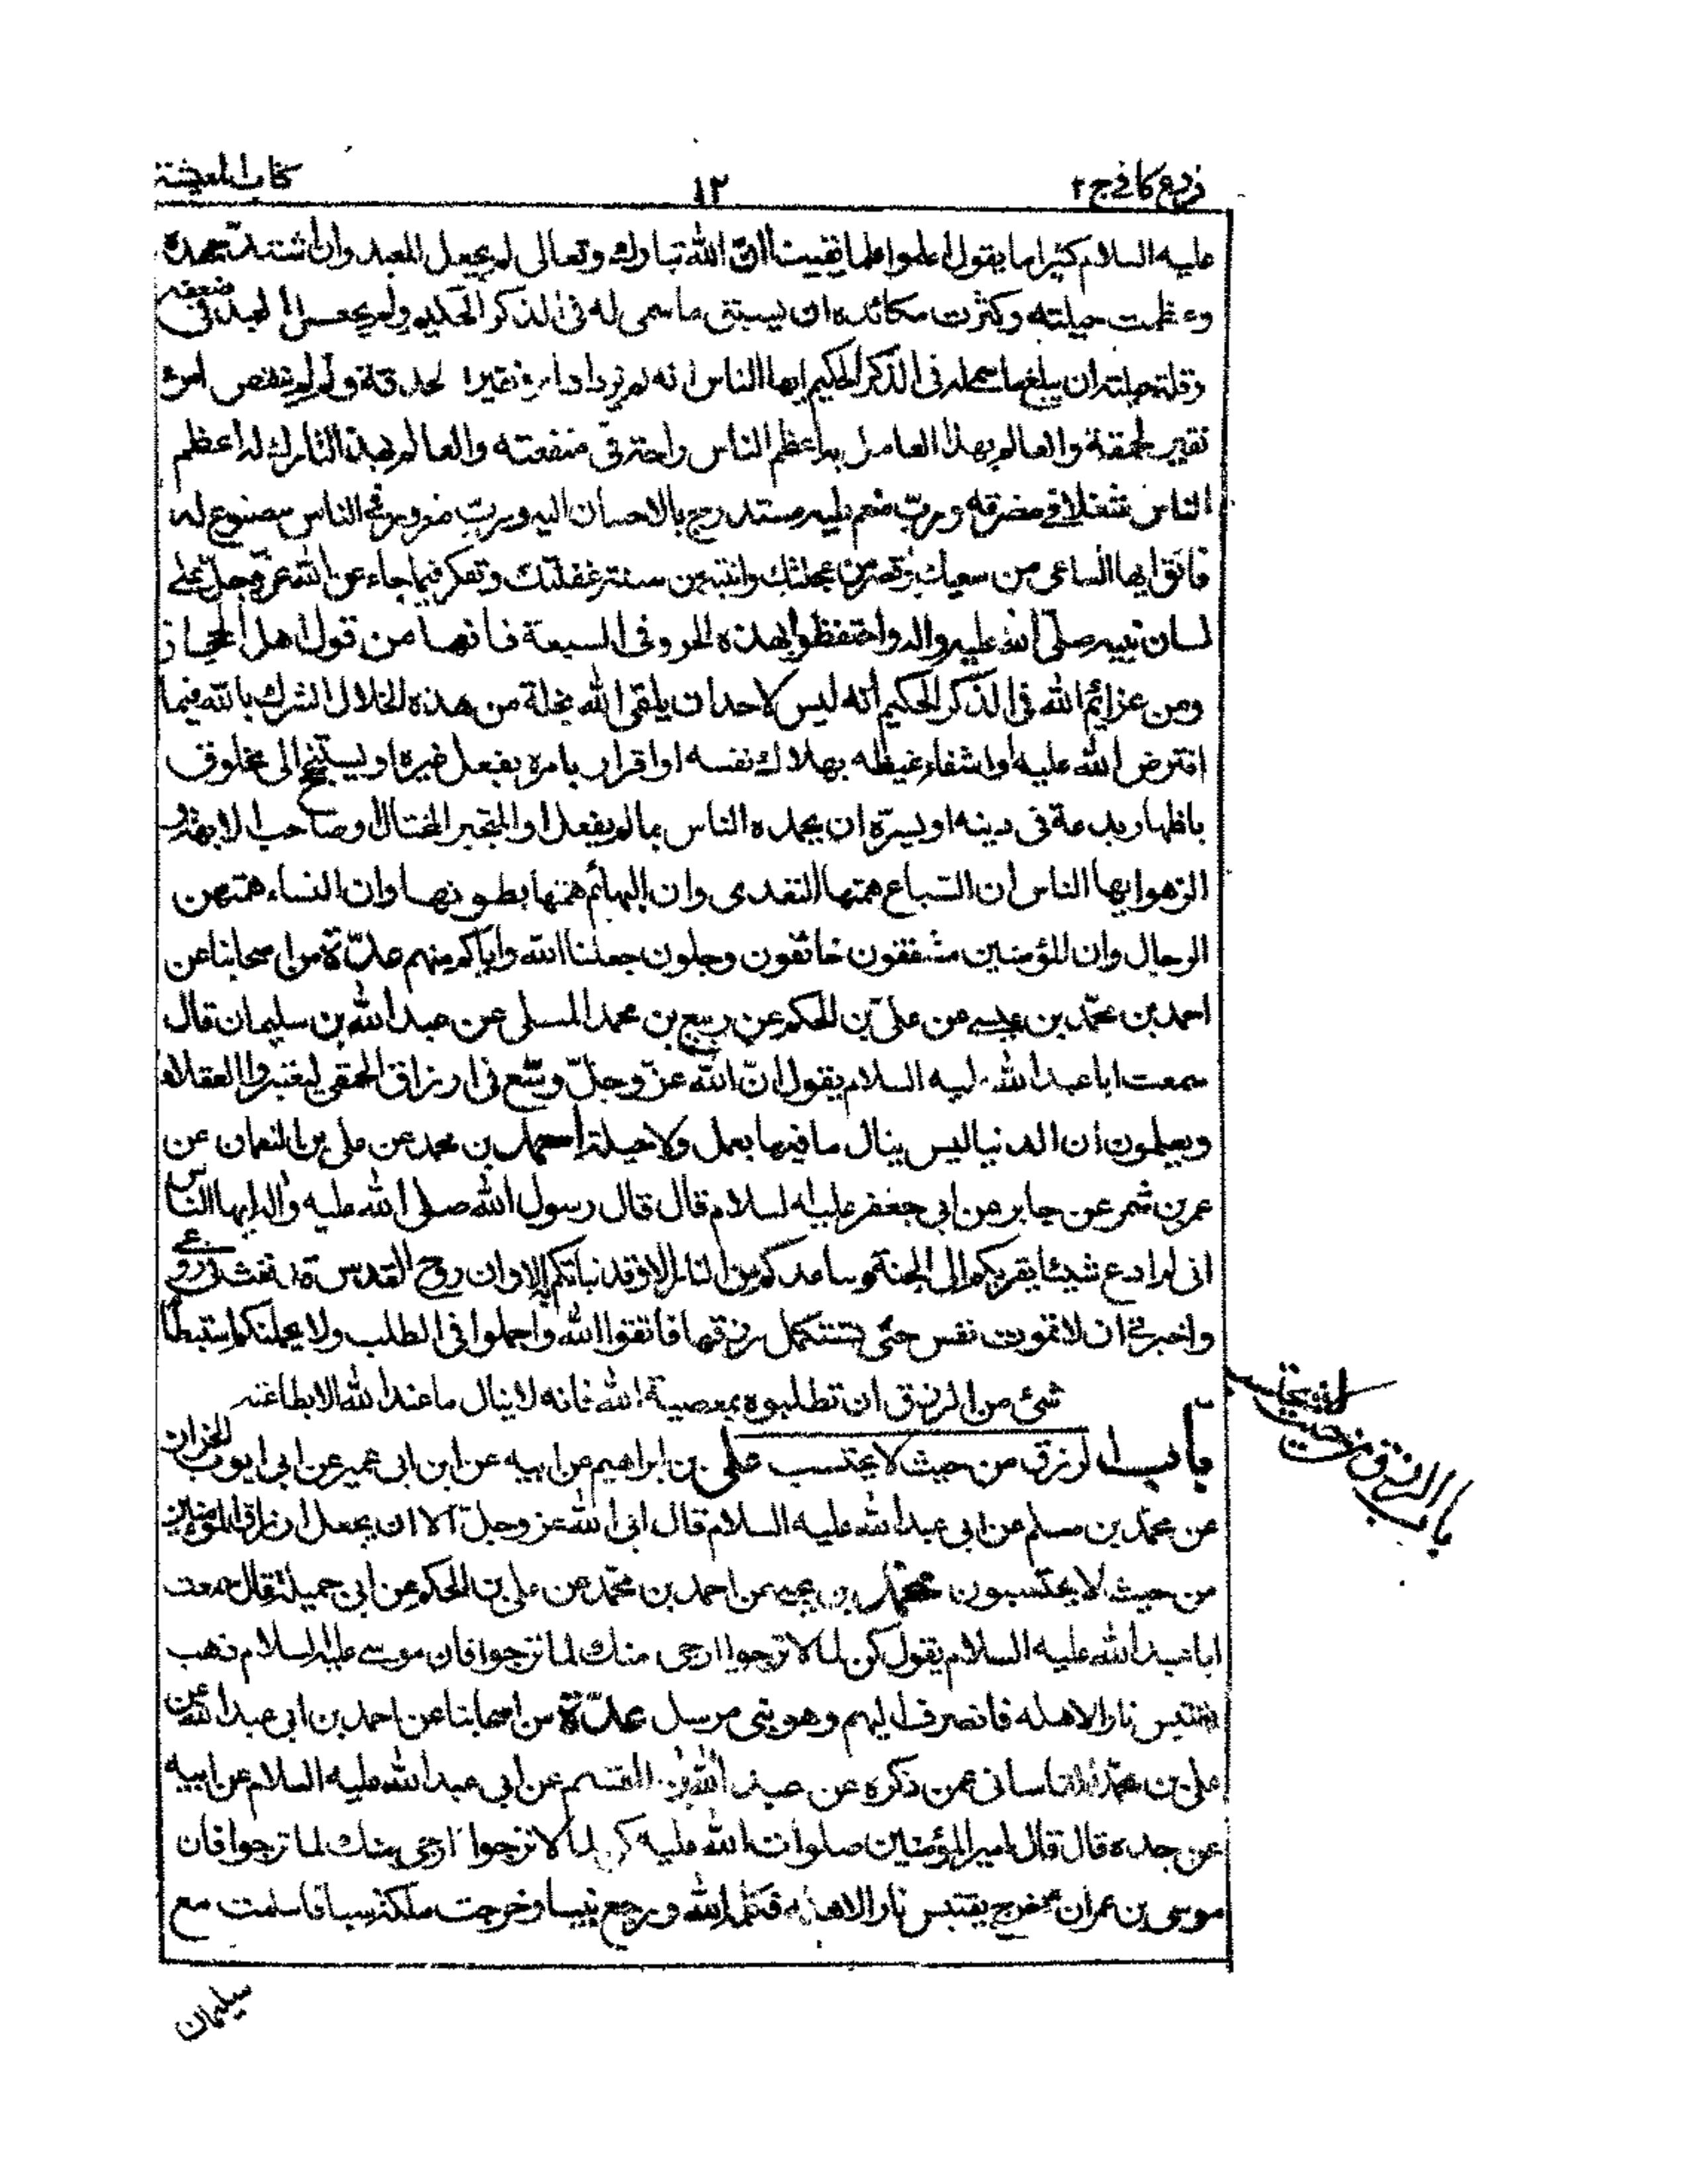 فروع كافي ج ٢ ١٢ كتاب المعيشة
عليه السلام كثيرا ما يقول اعلموا علما يقينا ان الله تبارك وتعالى لم يجعل للعبد وان اشتد جهده
وعظمت حيلته وكثرت مكائده ان يسبق ما سمى له في الذكر الحكيم ولم يحل العبد في ضعفه
وقلة حيلته ان يبلغ ما سمى له في الذكر الحكيم ايها الناس انه لم يزدد امرؤ نقيرا بحذقه ولم ينقص امرء
نقير لحمقه والعالم بهذا العامل به اعظم الناس راحة في منفعته والعالم بهذا التارك له اعظم
الناس شغلا في مضرته ورب منعم عليه مستدرج بالاحسان اليه ورب مغرور في الناس مصنوع له
فاتق ايها الساعي من سعيك وقصر من عجلتك وانتبه من سنة غفلتك وتفكر فيما جاء عن الله عز وجل على
لسان نبيه صلى الله عليه واله واحتفظوا بهذه الحروف السبعة فانها من قول اهل الحجا و
ومن عزائم الله في الذكر الحكيم انه ليس لاحد ان يلقى الله بخلة من هذه الخلال الشرك بالله فيما
افترض الله عليه او اشفاء غيظه بهلاك نفسه او اقرار بامره بفعل غيره او يستنجح الى مخلوق
باظهار بدعة في دينه او يسره ان يحمده الناس بما لم يفعل او المتجبر المختال وصاحب الابهة و
الزهو ايها الناس ان السباع همتها التعدى وان البهائم همتها بطونها وان النساء همتهن
الرجال وان المؤمنين مشفقون خائفون وجلون جعلنا الله واياكم منهم عدة من اصحابنا عن
احمد بن محمد بن عيسى عن على بن الحكم عن ربيع بن محمد المسلى عن عبد الله بن سليمان قال
سمعت ابا عبد الله عليه السلام يقول ان الله عز وجل وسع في ارزاق الحمقى ليعتبر العقلاء
ويعلمون ان الدنيا ليس ينال ما فيها بعمل ولا حيلة احمد بن محمد عن على بن النعمان عن
عمر بن شمر عن جابر عن ابى جعفر عليه السلام قال قال رسول الله صلى الله عليه واله ايها الناس
انى لم ادع شيئا يقربكم الى الجنة ويباعدكم من النار الا وقد نباتكم به الا وان روح القدس قد نفث في روعى
واخبرنى ان لا تموت نفس حتى تستكمل رزقها فاتقوا الله واجملوا فى الطلب ولا يحملنكم استبطا
شئ من الرزق ان تطلبوه بمعصية الله فانه لا ينال ما عند الله الا بطاعته
باب الرزق من حيث لا يحتسب على بن ابراهيم عن ابيه عن ابن ابى عمير عن ابى ايوب الخزاز
عن محمد بن مسلم عن ابى عبد الله عليه السلام قال ابى الله عز وجل الا ان يجعل ارزاق المؤمنين
من حيث لا يحتسبون محمد بن يحيى عن احمد بن محمد عن على بن الحكم عن ابى جميلة قال سمعت
ابا عبد الله عليه السلام يقول كن لما لا ترجوا ارجى منك لما ترجوا فان موسى عليه السلام ذهب
يقتبس نارا لاهله فانصرف اليهم وهو نبى مرسل عدة من اصحابنا عن احمد بن ابى عبد الله عن
على بن محمد القاسانى عمن ذكره عن عبد الله بن القسم عن ابى عبد الله عليه السلام عن ابيه
عن جده قال قال امير المؤمنين صلوات الله عليه كن لما لا ترجوا ارجى منك لما ترجوا فان
موسى بن عمران ع خرج يقتبس نارا لاهله فكلمه الله ورجع نبيا وخرجت ملكة سبا فاسلمت مع
سليمان
باب الرزق من حيث لا يحتسب